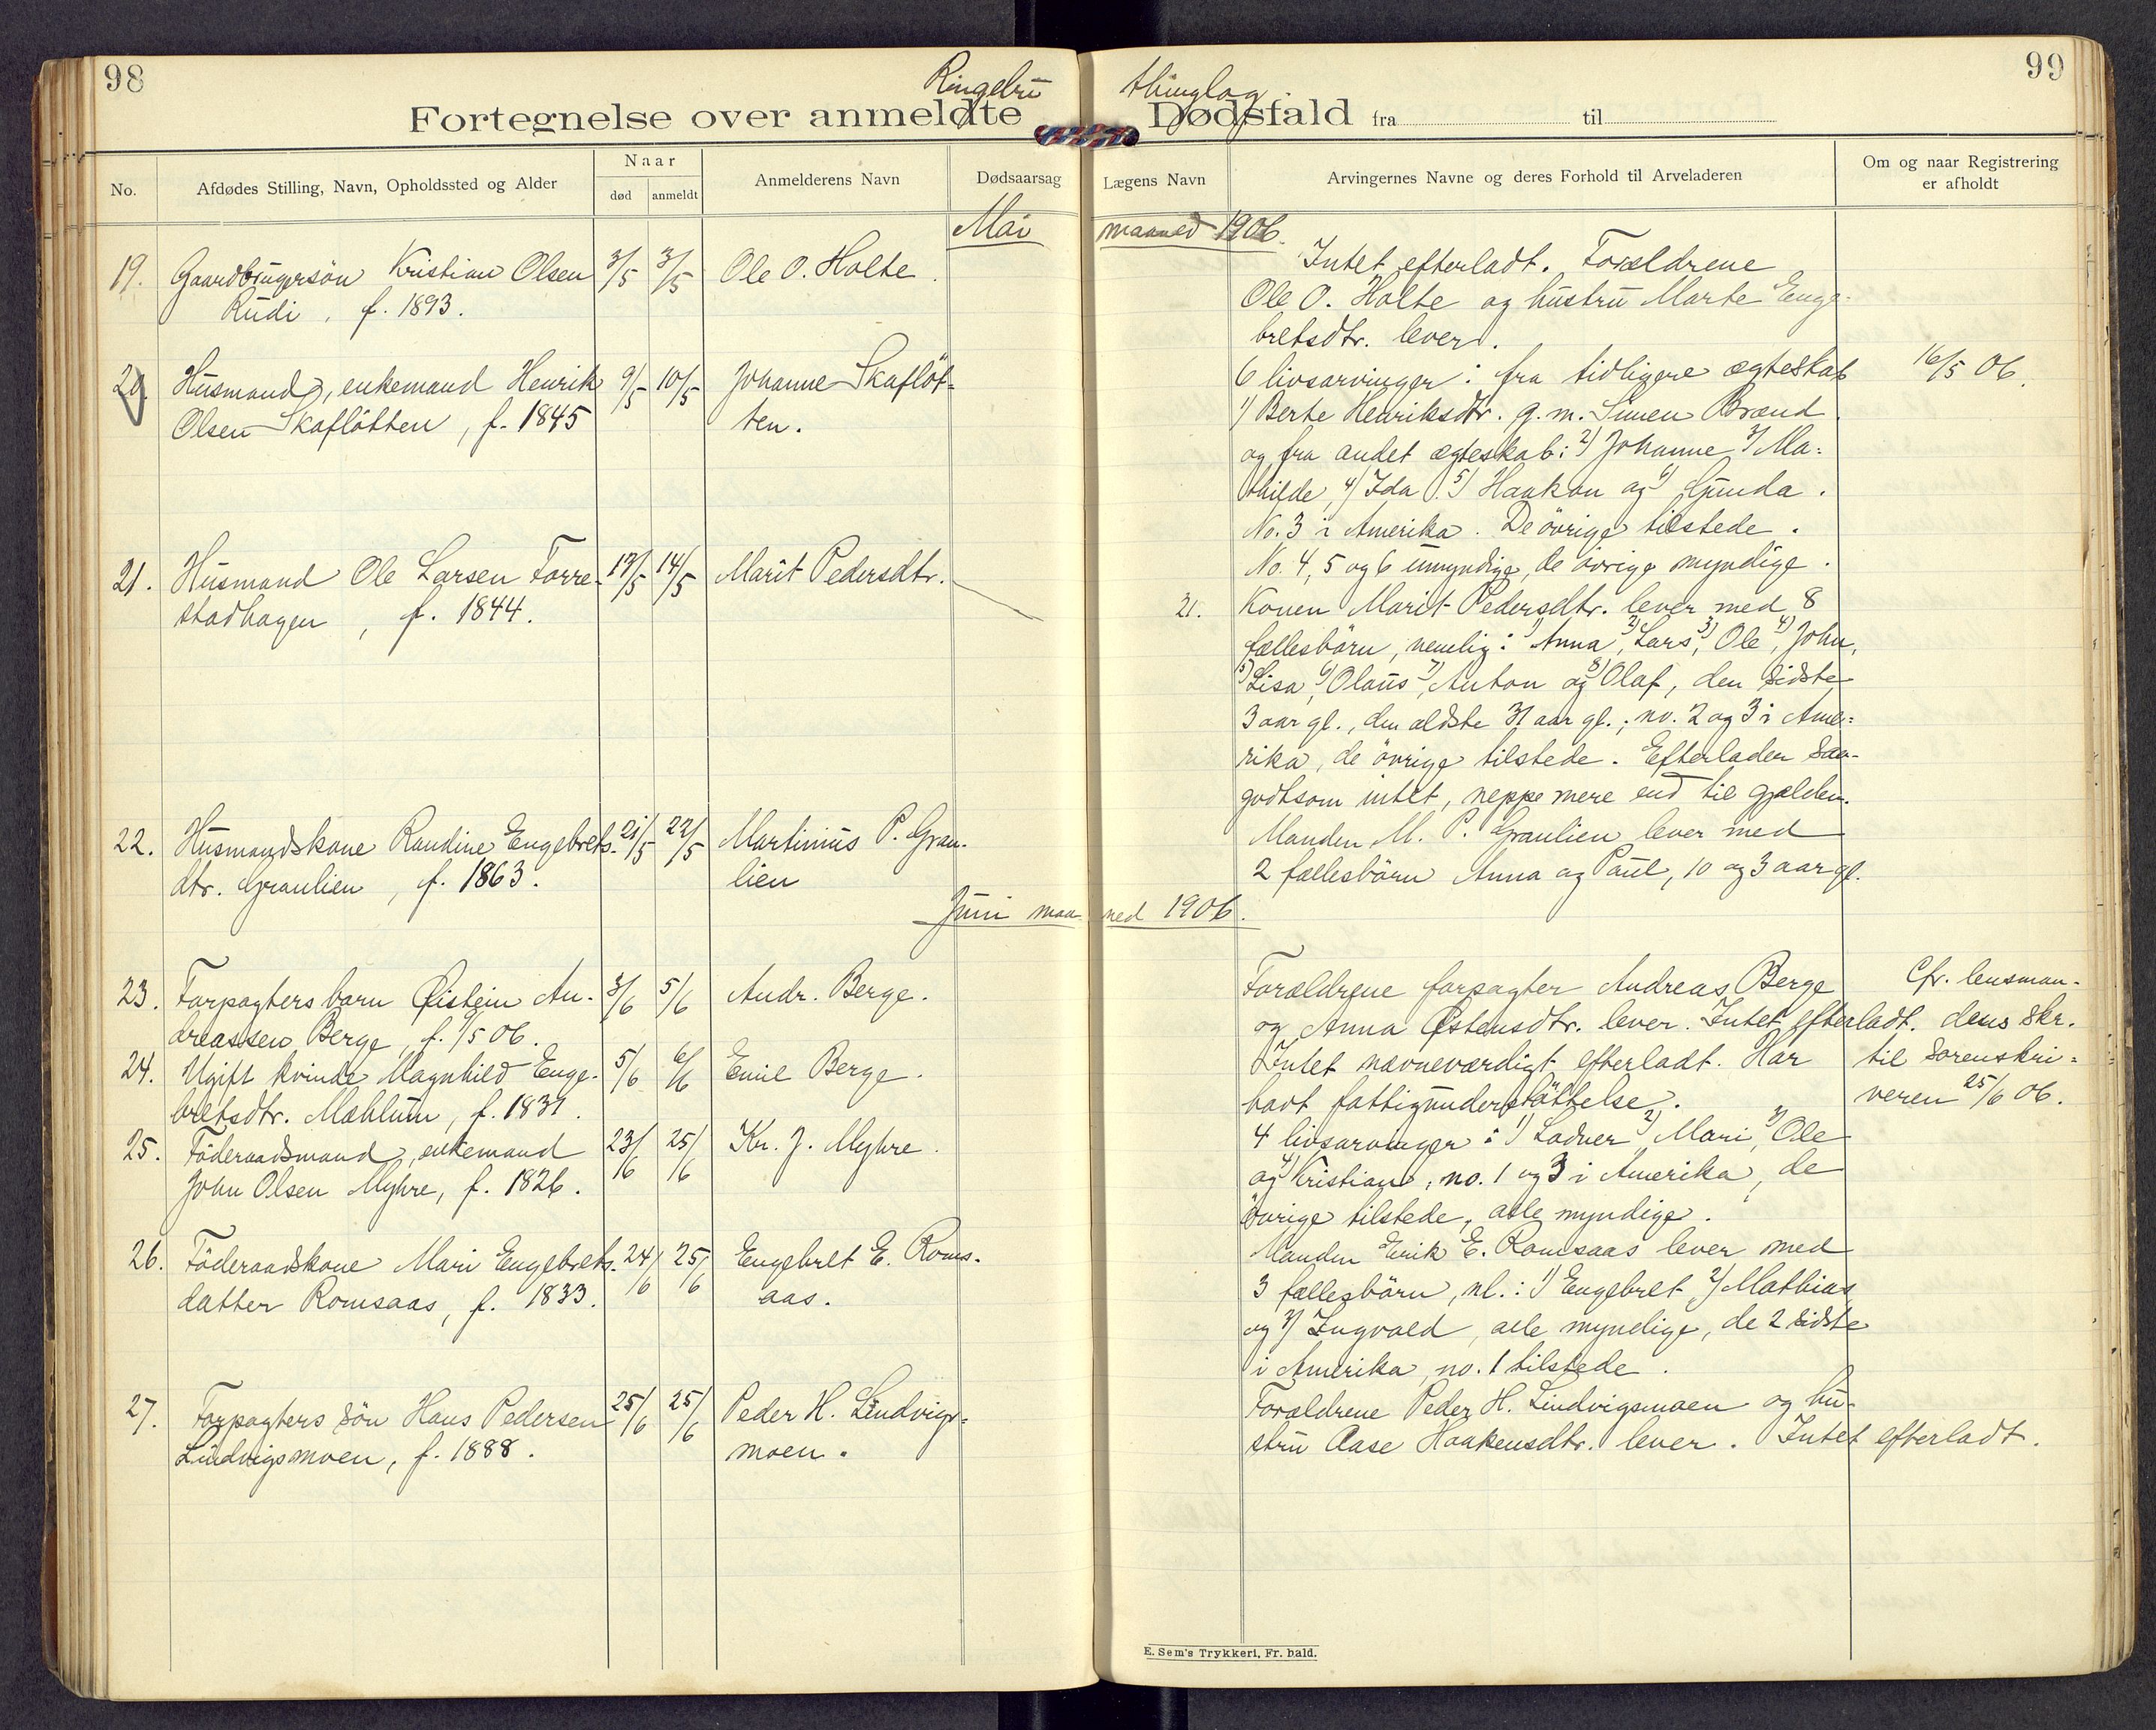 98
99
Ringebu thinglag.
Fortegnelse over anmeldte Dødsfald fra til
No.
Afdødes Stilling, Navn, Opholdssted og Alder
Naar
død
anmeldt
Anmelderens Navn
Dødsaarsag
Lægens Navn
Arvingernes Navne og deres Forhold til Arveladeren
Om og naar Registrering
er afholdt
Mai maaned 1906.
19. Gaardbrugersön Kristian Olsen 3/5 3/5 Ole O. Holte.
Rudi, f. 1893.
Intet efterladt. Forældrene
Ole O. Holte og hustru Marte Enge=
bretsdtr. lever.
20. Husmand, enkemand Henrik 9/5 10/5 Johanne Skaflöt=
Olsen Skaflötten, f. 1845 ten.
6 livsarvinger: fra tidligere ægteskab 16/5 06.
1) Berte Henriksdtr. g.m. Simen Brænd
og fra andet ægteskab: 2) Johanne 3) Ma=
thilde, 4) Ida 5) Haakon og 6) Gunda.
No. 3 i Amerika. De övrige tilstede.
No. 4, 5 og 6 umyndige, de övrige myndige.
21. Husmand Ole Larsen Forre- 13/5 14/5 Marit Pedersdtr.
stadhagen, f. 1844.
21. Konen Marit Pedersdtr. lever med 8
fællesbörn, nemlig: 1) Anna, 2) Lars, 3) Ole, 4) John,
5) Lisa, 6) Olaus, 7) Anton og 8) Olaf, den sidste
3 aar gl., den ældste 31 aar gl.; no. 2 og 3 i Ame=
rika, de övrige tilstede. Efterlader saa-
godtsom intet, neppe mere end til gjælden.
22. Husmandskone Randine Engebrets- 21/5 22/5 Martinius P. Gran-
dtr. Granlien, f. 1863. lien
Manden M. P. Granlien lever med
2 fællesbörn Anna og Paul, 10 og 3 aar gl.
Juni maaned 1906.
23. Forpagters barn Øistein An- 3/6 5/6 Andr. Berge.
dreassen Berge, f. 1/5 06.
Forældrene forpagter Andreas Berge
og Anna Østensdtr. lever. Intet efterladt.
24. Ugift kvinde Magnhild Enge- 5/6 6/6 Emil Berge.
bretsdtr. Mæhlum, f. 1831.
Intet nævneværdigt efterladt. Har
havt fattigunderstöttelse.
Cfr. lensman-
dens skr.
til sorenskri=
veren 25/6 06.
25. Föderaadsmand, enkemand 23/6 25/6 Kr. J. Myhre.
John Olsen Myhre, f. 1826.
4 livsarvinger: 1) Lodver, 2) Mari, 3) Ole
og 4) Kristian, no. 1 og 3 i Amerika, de
övrige tilstede, alle myndige.
26. Föderaadskone Mari Engebrets- 24/6 25/6 Engebret E. Roms-
datter Romsaas, f. 1833. aas.
Manden Erik E. Romsaas lever med
3 fællesbörn, nl.: 1) Engebret 2) Mathias
og 3) Ingvald, alle myndige, de 2 sidste
i Amerika, no. 1 tilstede.
27. Forpagters sön Hans Pedersen 25/6 25/6 Peder H. Lindvigs=
Lindvigsmoen, f. 1888. moen.
Forældrene Peder H. Lindvigsmoen og hu-
stru Aase Haakensdtr. lever. Intet efterladt.
E. Sem's Trykkeri, Fr. hald.